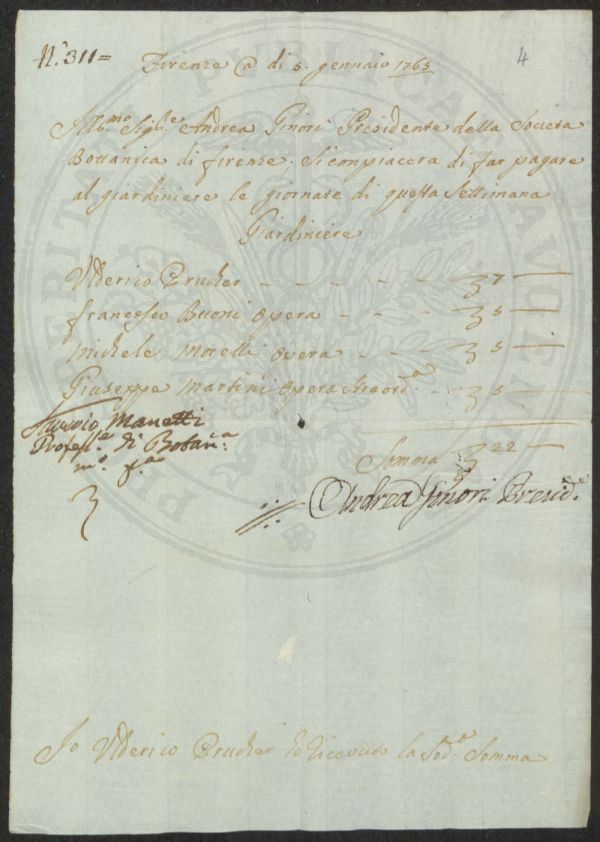 N.° 311=
4
Firenze @ di 5. gennaio 1765
Ill.mo Sig.re Andrea Ginori Presidente della Società
Bottanica di firenze, si compiacera di far pagare
al giardiniere le giornate di questa Settimana
Giardiniere
Ulderico Prucher - - - - - - 7 —
francesco Buoni opera - - - 5 —
Michele Morelli opera - - - 5 —
Giuseppe Martini opera straord.a - - 5 —
Somma 22 —
Saverio Manetti
Profess.e di Botan.a
m.o p.a
Andrea Ginori Presid.te
Io Ulderico Prucher ho ricevuto la Sod.a Somma
PROSPERITATI PUBLICAE AUGENDAE